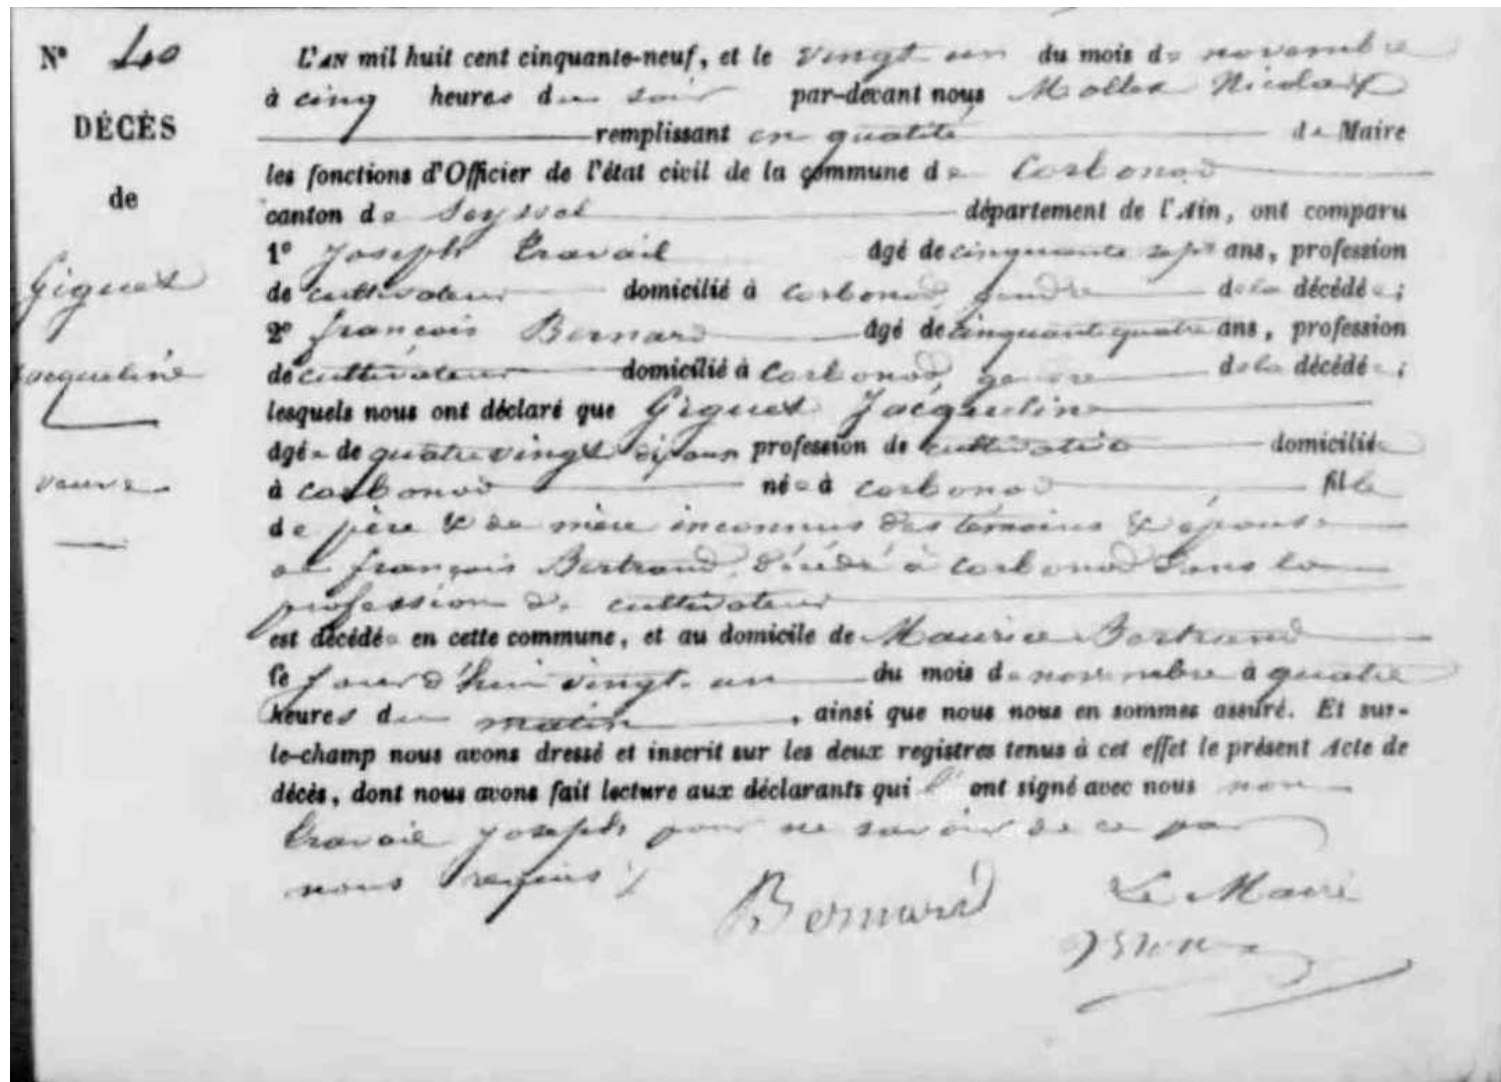 N° 40
DÉCÈS
de
Giguet
Jacqueline
veuve
L'AN mil huit cent cinquante-neuf, et le vingt un du mois de novembre
à cinq heures du soir par-devant nous Mollex Nicolas
remplissant en qualité de Maire
les fonctions d'Officier de l'état civil de la commune de Corbonod
canton de Seyssel département de l'Ain, ont comparu
1° Joseph Travail âgé de cinquante sept ans, profession
de cultivateur domicilié à Corbonod gendre de la décédée ;
2° françois Bernard âgé de cinquante quatre ans, profession
de cultivateur domicilié à Corbonod gendre de la décédée ;
lesquels nous ont déclaré que Giguet Jacqueline
âgée de quatre vingt dix ans profession de cultivatrice domiciliée
à Corbonod née à Corbonod fille
de père & de mère inconnus des témoins & épouse
de françois Bertrand, décédé à Corbonod dans la
profession de cultivateur
est décédée en cette commune, et au domicile de Maurice Bertrand
le jourd'hui vingt-un du mois de novembre à quatre
heures du matin, ainsi que nous nous en sommes assuré. Et sur-
le-champ nous avons dressé et inscrit sur les deux registres tenus à cet effet le présent Acte de
décès, dont nous avons fait lecture aux déclarants qui l' ont signé avec nous non
travail joseph pour ne savoir de ce par
nous requis
Bernard
Le Maire